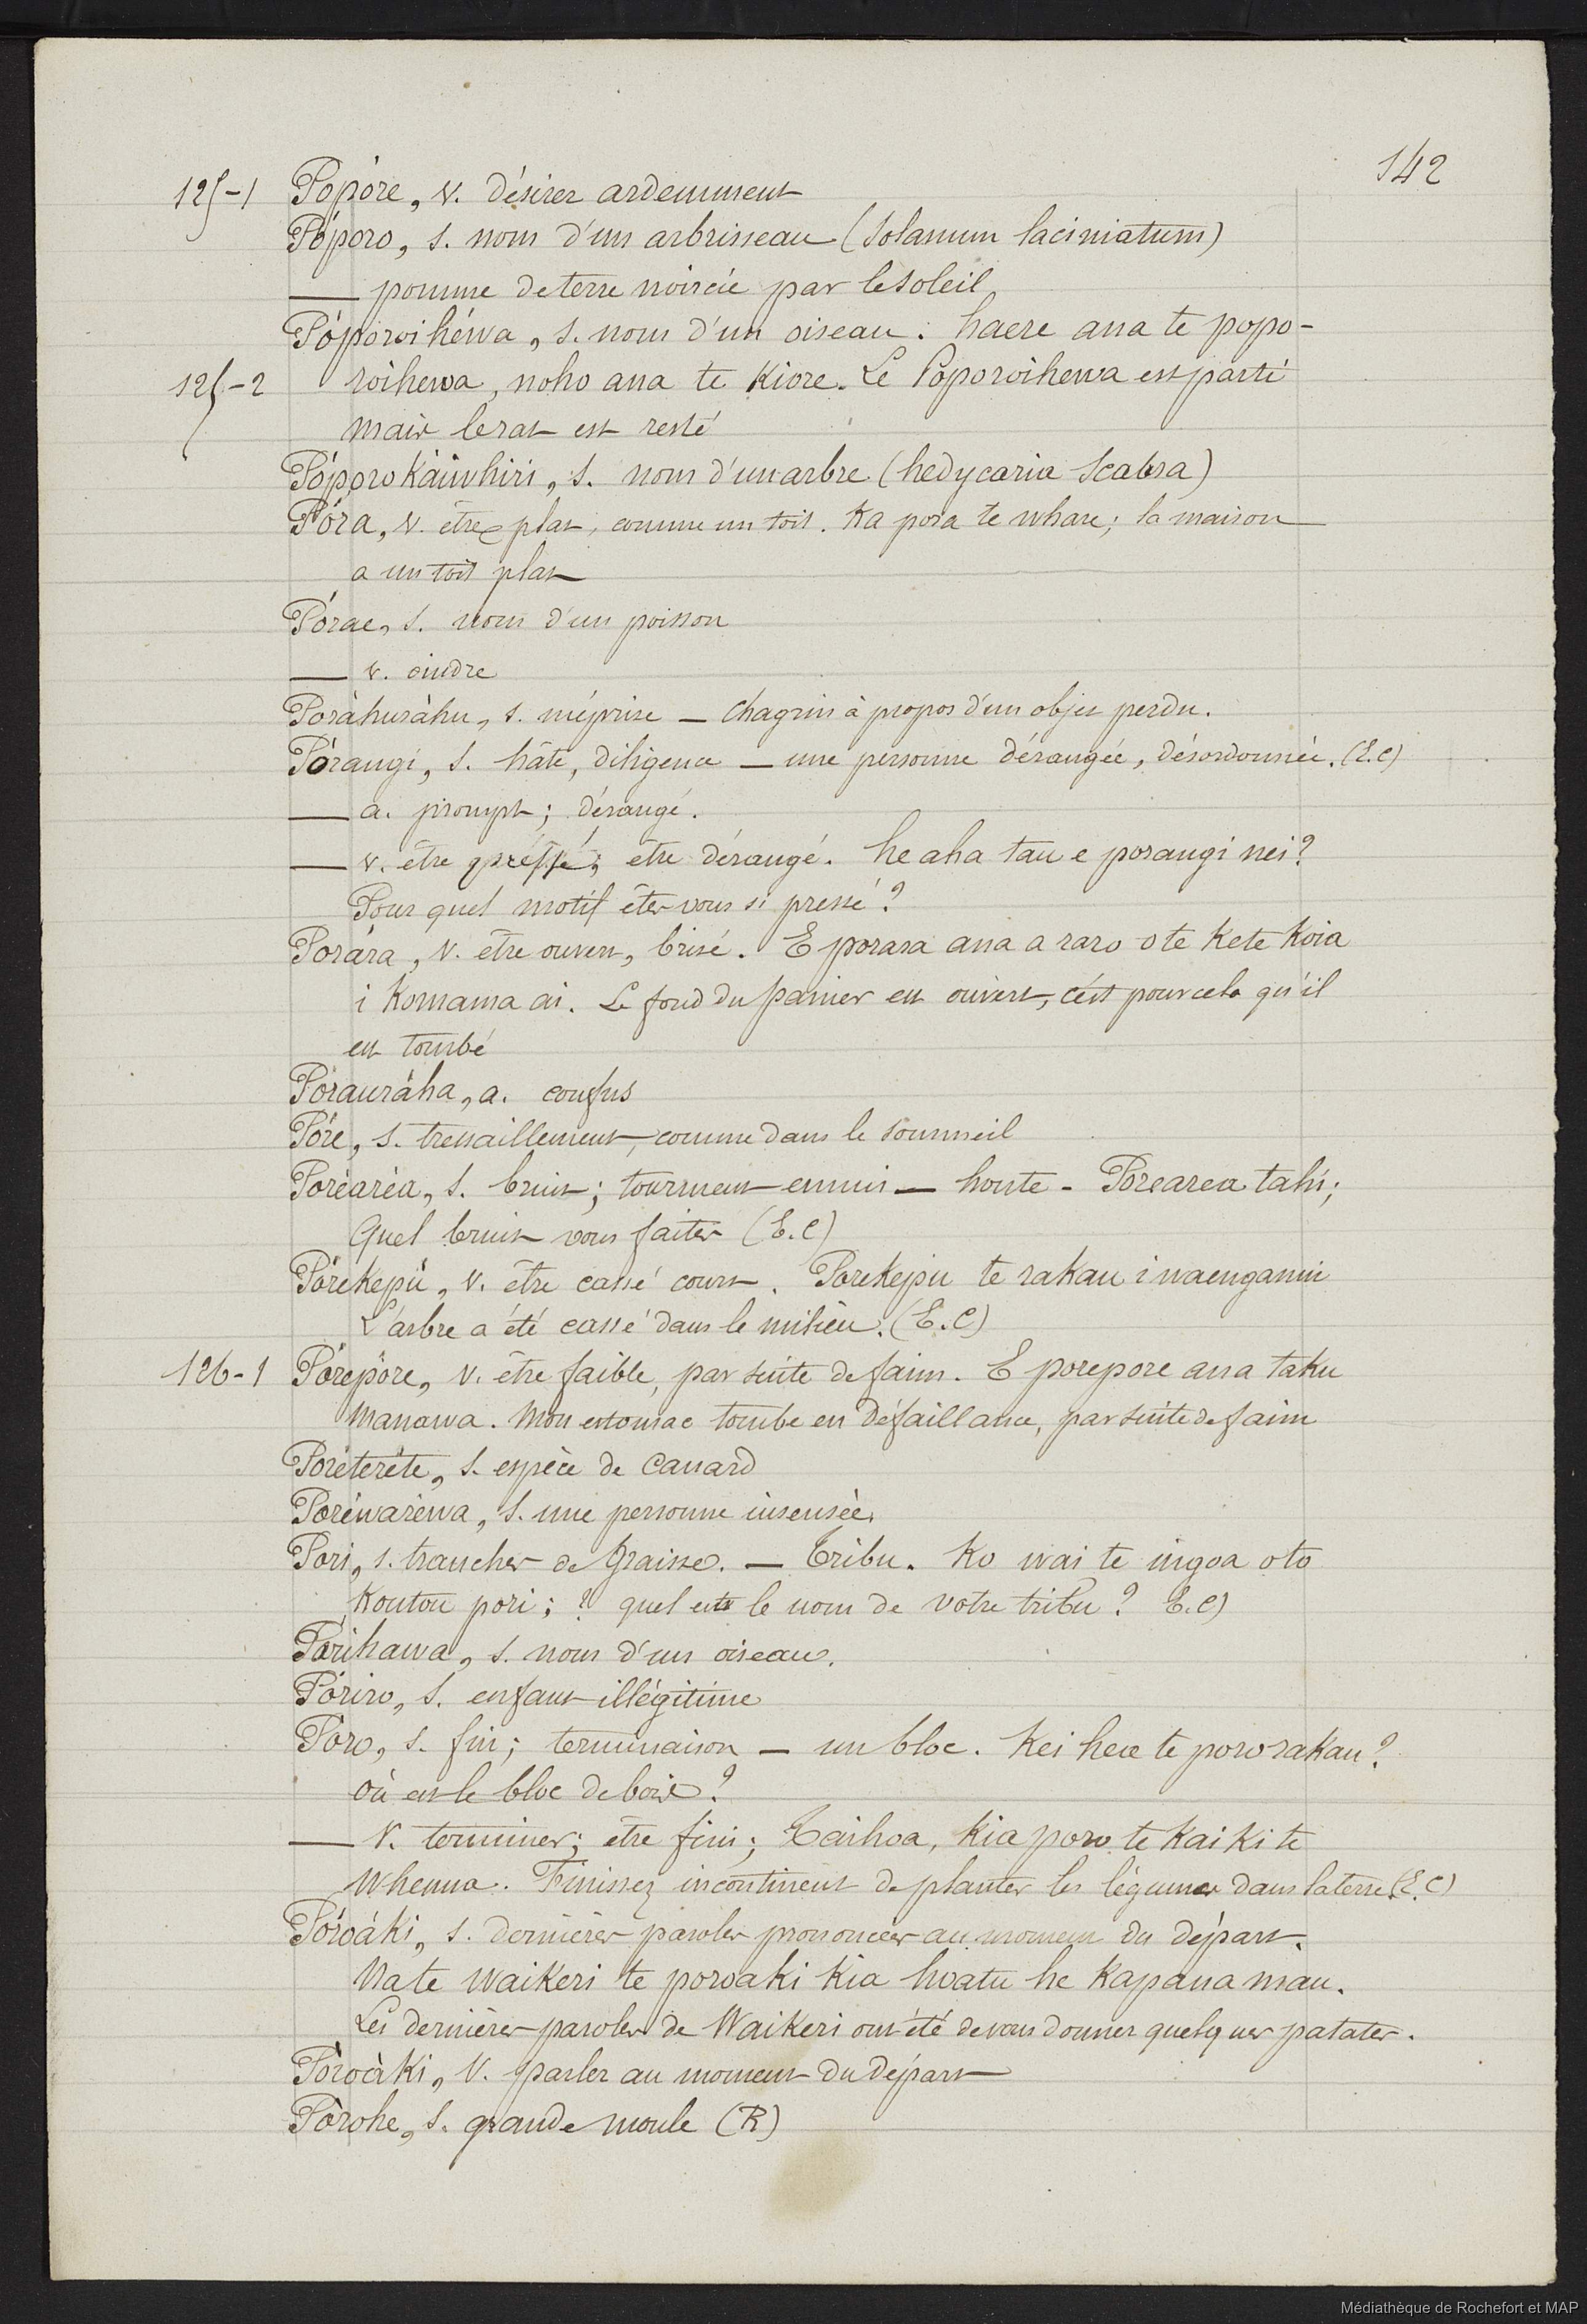 142
125-1 Popòre, v. désirer ardemment
Póporo, s. nom d'un arbrisseau (Solanum laciniatum)
— pomme de terre noircie par le soleil
Póporoihéwa, s. nom d'un oiseau. haere ana te popo-
125-2 roihewa, noho ana te kiore. Le Poporoihewa est parti
mais le rat est resté
Póporokàiwhiri, s. nom d'un arbre (hedycaria Scabra)
Póra, v. être plat, comme un toit. Ka pora te whare; la maison
a un toit plat
Pórae, s. nom d'un poisson
— v. oindre
Poràhuràhu, s. méprise — Chagrin à propos d'un objet perdu.
Pórangi, s. hâte, diligence — une personne dérangée, désordonnée. (E.C)
— a. prompt; dérangé.
— v. être pressé; être dérangé. he aha tau e porangi nei?
Pour quel motif êtes vous si pressé?
Porára, v. être ouvert, brisé. E porara ana a raro o te kete koia
i komama ai. Le fond du panier est ouvert, c'est pour cela qu'il
est tombé
Pórauràha, a. confus
Póre, s. tressaillement, comme dans le sommeil
Poréaréa, s. bruit; tourment ennui — honte - Porearea tahi;
Quel bruit vous faites (E.C)
Pórekepù, v. être cassé court. Porekepu te rakau i waenganui
L'arbre a été cassé dans le milieu. (E.C)
126-1 Pórepòre, v. être faible, par suite de faim. E porepore ana taku
manawa. Mon estomac tombe en défaillance, par suite de faim
Porétérète, s. espèce de Canard
Poréwaréwa, s. une personne insensée.
Pori, s. tranches de graisse. — Tribu. Ko wai te ingoa o to
koutou pori; ? quel est le nom de votre tribu? E.C)
Porihawa, s. nom d'un oiseau.
Póriro, s. enfant illégitime
Poro, s. fin; terminaison — un bloc. Kei hea te poro rakau?
où est le bloc de bois?
— v. terminer; être fini; Taihoa, kia poro te kai ki te
Whenua. Finissez incontinent de planter les légumes dans la terre. (E.C)
Póroáki, s. dernières paroles prononcées au moment du départ.
Na te Waikeri te poroaki kia hoatu he kapana mau.
Les dernières paroles de Waikeri ont été de vous donner quelques patates.
Póroàki, v. parler au moment du départ
Pòrohe, s. grande moule (R)
Médiathèque de Rochefort et MAP